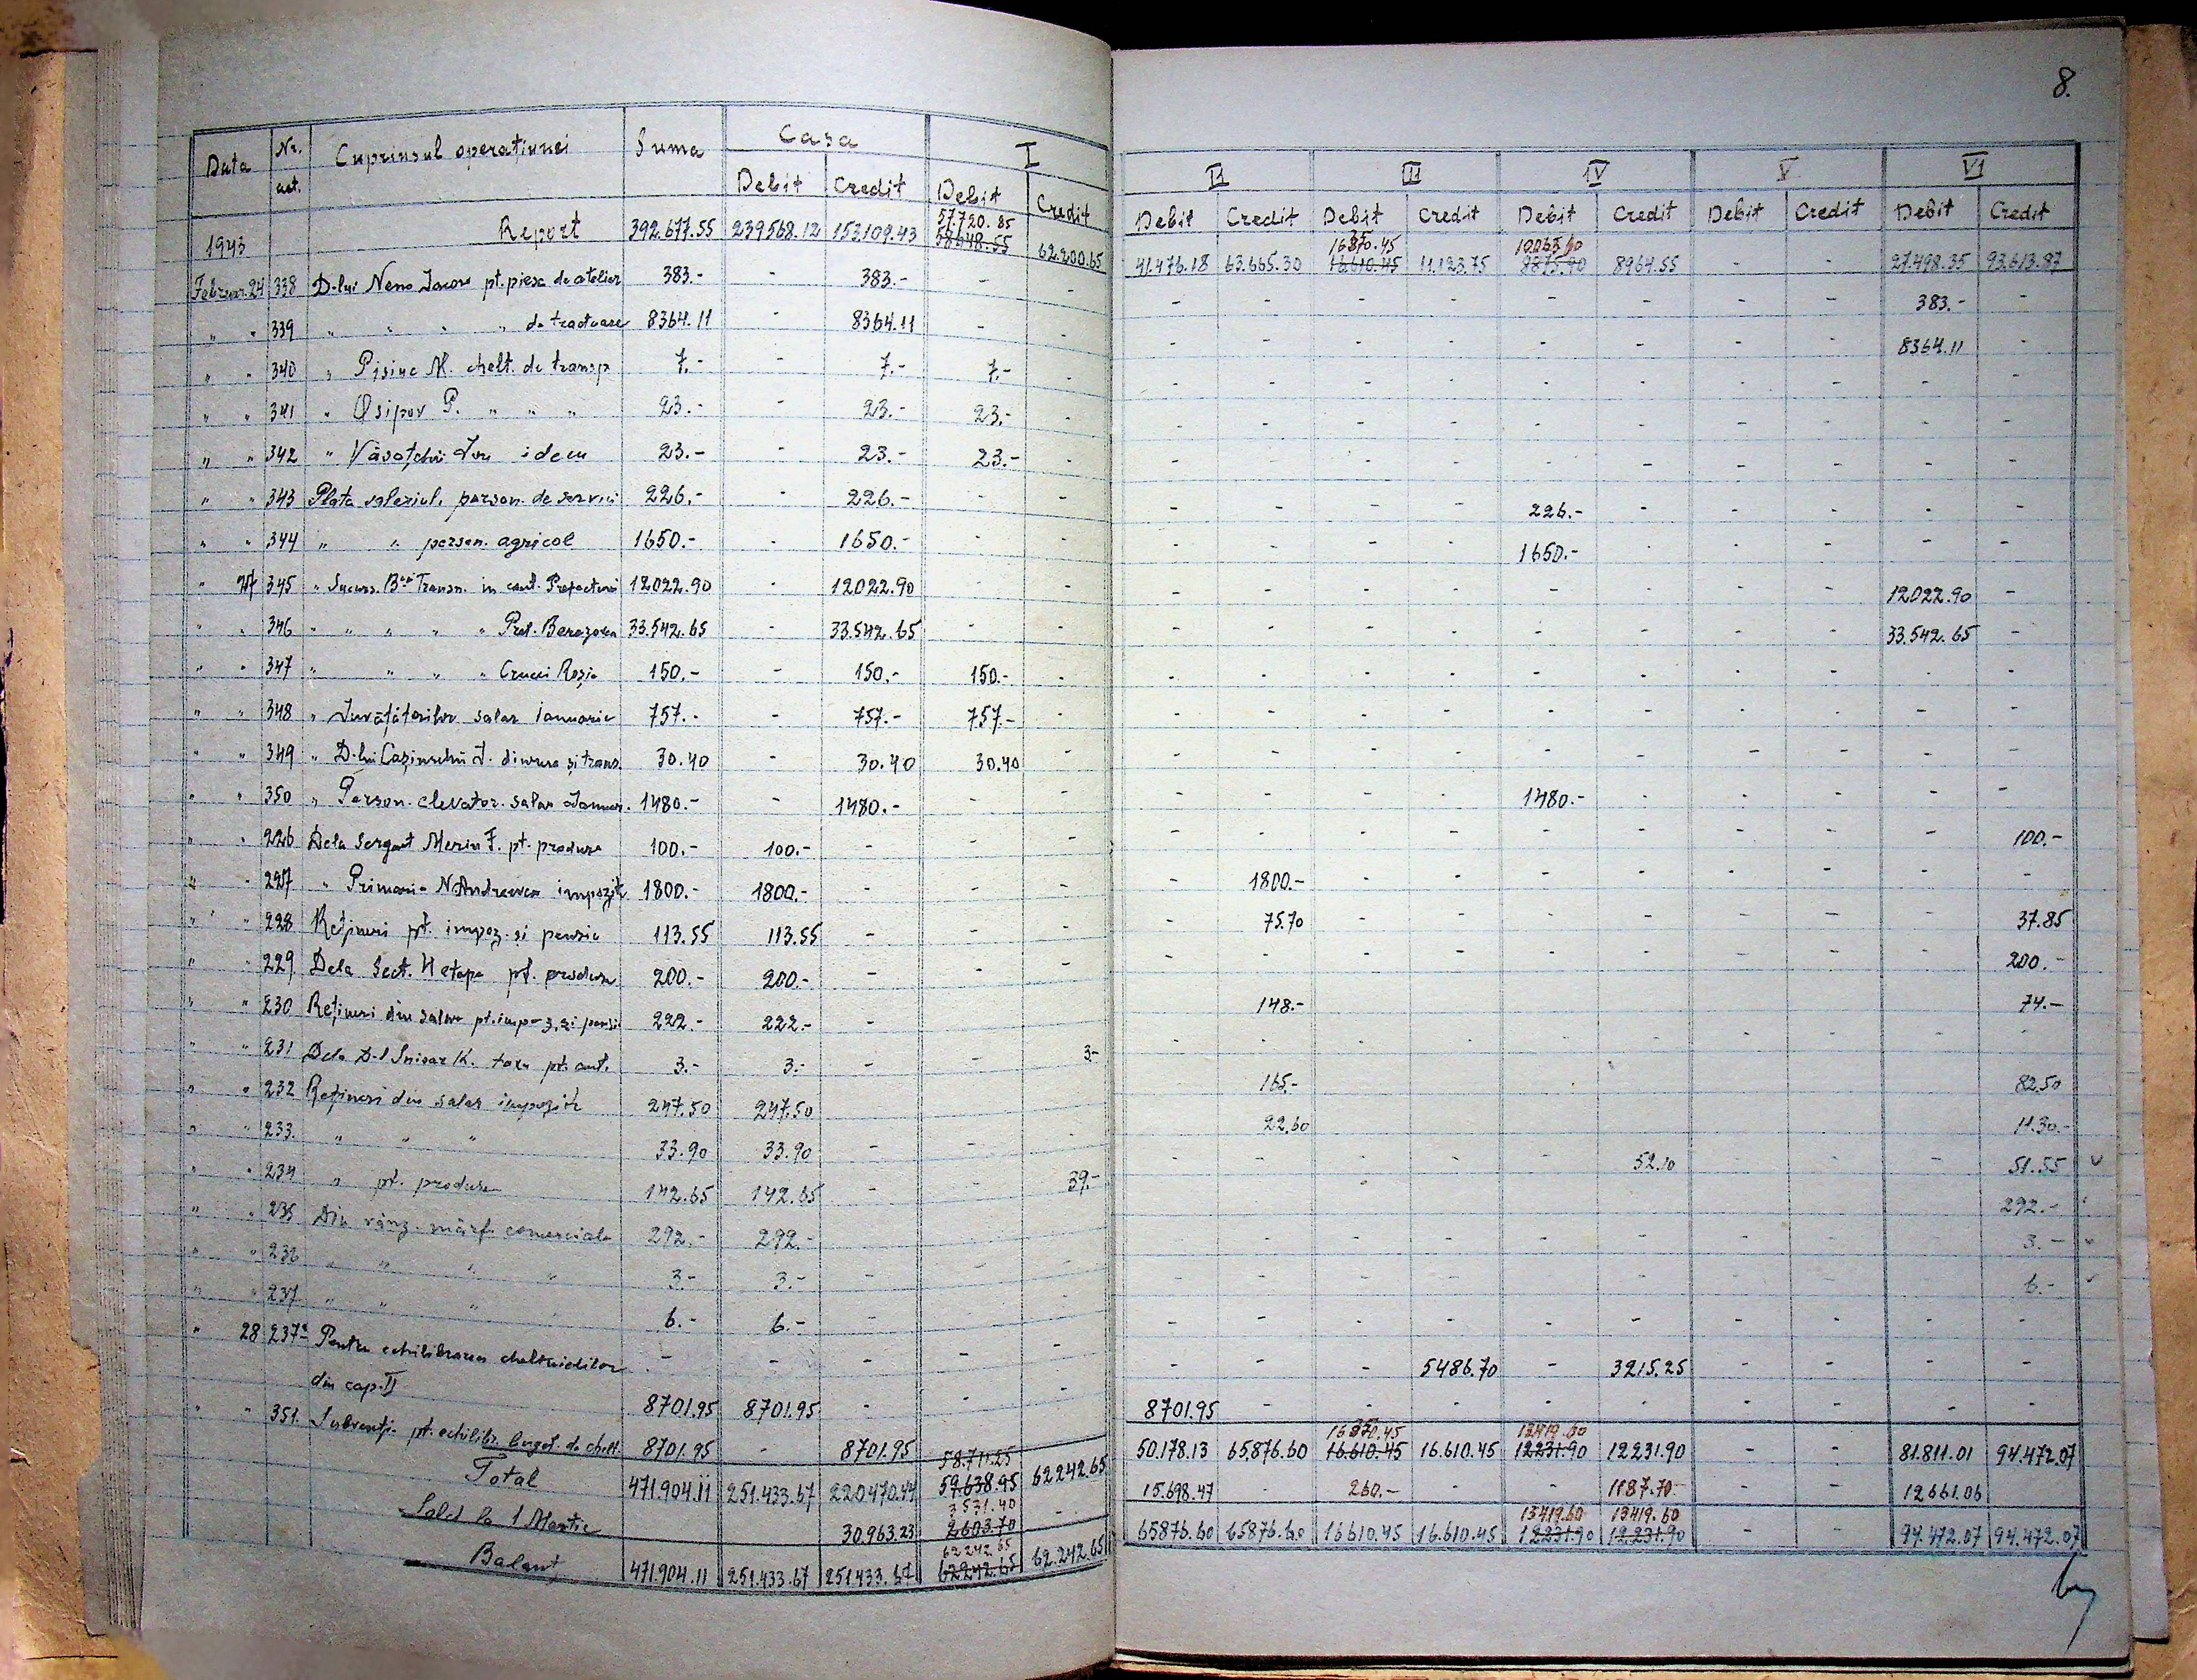 8.
Data Nr. act. Cuprinsul operatiunei Suma Casa Debit Credit I Debit Credit II Debit Credit III Debit Credit IV Debit Credit V Debit Credit VI Debit Credit
57.720.85 16370.45 10063.60
1943 Report 392.677.55 239568.12 153.109.43 58648.55 62.200.65 41.476.18 63.665.30 16.610.45 11.123.75 8875.90 8964.55 - - 27.498.35 93.613.87
Februar. 24 338 D-lui Neno Iacov pt. piese de atelier 383.- - 383.- - - - - - - - - - - 383.- -
" " 339 " " " " de tractoare 8364.11 - 8364.11 - - - - - - - - - - 8364.11 -
" " 340 " Pisinc M. chelt. de transp 7.- - 7.- 7.- - - - - - - - - - - -
" " 341 " Osipov P. " " " 23.- - 23.- 23.- - - - - - - - - - - -
" " 342 " Văsoțchii Ion idem 23.- - 23.- 23.- - - - - - - - - - - -
" " 343 Plata salariul. person. de servici 226.- - 226.- - - - - - - 226.- - - - - -
" " 344 " " person. agricol 1650.- - 1650.- - - - - - - 1650.- - - - - -
" 27 345 " Sucurs. B-cii Transn. in cont. Prefecturii 12022.90 - 12022.90 - - - - - - - - - - 12022.90 -
" " 346 " " " " " Pret. Berezovca 33.542.65 - 33.542.65 - - - - - - - - - - 33.542.65 -
" " 347 " " " " Crucei Roșie 150.- - 150.- 150.- - - - - - - - - - - -
" " 348 " Învățătorilor salar Ianuarie 757.- - 757.- 757.- - - - - - - - - - - -
" " 349 " D-lui I. diurna și trans. 30.40 - 30.40 30.40 - - - - - - - - - - -
" " 350 " Person. elevator. salar Januar. 1480.- - 1480.- - - - - - - 1480.- - - - - -
" " 226 Dela Sergent Merin F. pt. produse 100.- 100.- - - - - - - - - - - - - 100.-
" " 227 " Primaria N. Andreevca impozite 1800.- 1800.- - - - - 1800.- - - - - - - - -
" " 228 Rețineri pt. impoz. si pensie 113.55 113.55 - - - - 75.70 - - - - - - - 37.85
" " 229 Dela Sect. II etape pt. produse 200.- 200.- - - - - - - - - - - - - 200.-
" " 230 Rețineri din salar pt. impoz. si pensie 222.- 222.- - 148.- 74.-
" " 231 Dela D-l Snisar K. taxa pt. aut. 3.- 3.- - - 3.- - - - - - - - - - -
" " 232 Rețineri din salar impozite 247.50 247.50 165.- 82.50
" " 233. " " " 33.90 33.90 - - - 22.60 11.30.-
" " 234 " pt. produse 142.65 142.65 - - 39.- - - - - - 52.10 - - - 51.55
" " 235 Din vânz. mărf. comerciale 292.- 292.- 292.-
" " 236 " " " " 3.- 3.- - - - - - - - - - - - - 3.-
" " 237 " " " " 6.- 6.- - - - - - - - - - - - - 6.-
" 28 237a Pentru echilibrarea cheltuielilor - - - - - - - - - - - - - - -
din cap. II 8701.95 8701.95 - - - - - - 5486.70 - 3215.25 - - - -
" " 351. Subvenție pt. echilibr. buget. de chelt. 8701.95 - 8701.95 8701.95 - - - - - - - - -
58.711.25 16370.45 13419.60
Total 471.904.11 251.433.67 220470.44 59.638.95 62242.65 50.178.13 65.876.60 16.610.45 16.610.45 12231.90 12.231.90 - - 81.811.01 94.472.07
3531.40
Sold la 1 Martie 30.963.23 2603.70 - 15.698.47 - 260.- - - 1187.70 - - 12661.06
62242.65 13419.60 13419.60
Balant 471.904.11 251.433.67 251433.67 62242.65 62.242.65 65876.60 65876.60 16610.45 16.610.45 12231.90 12.231.90 - - 94.472.07 94.472.07